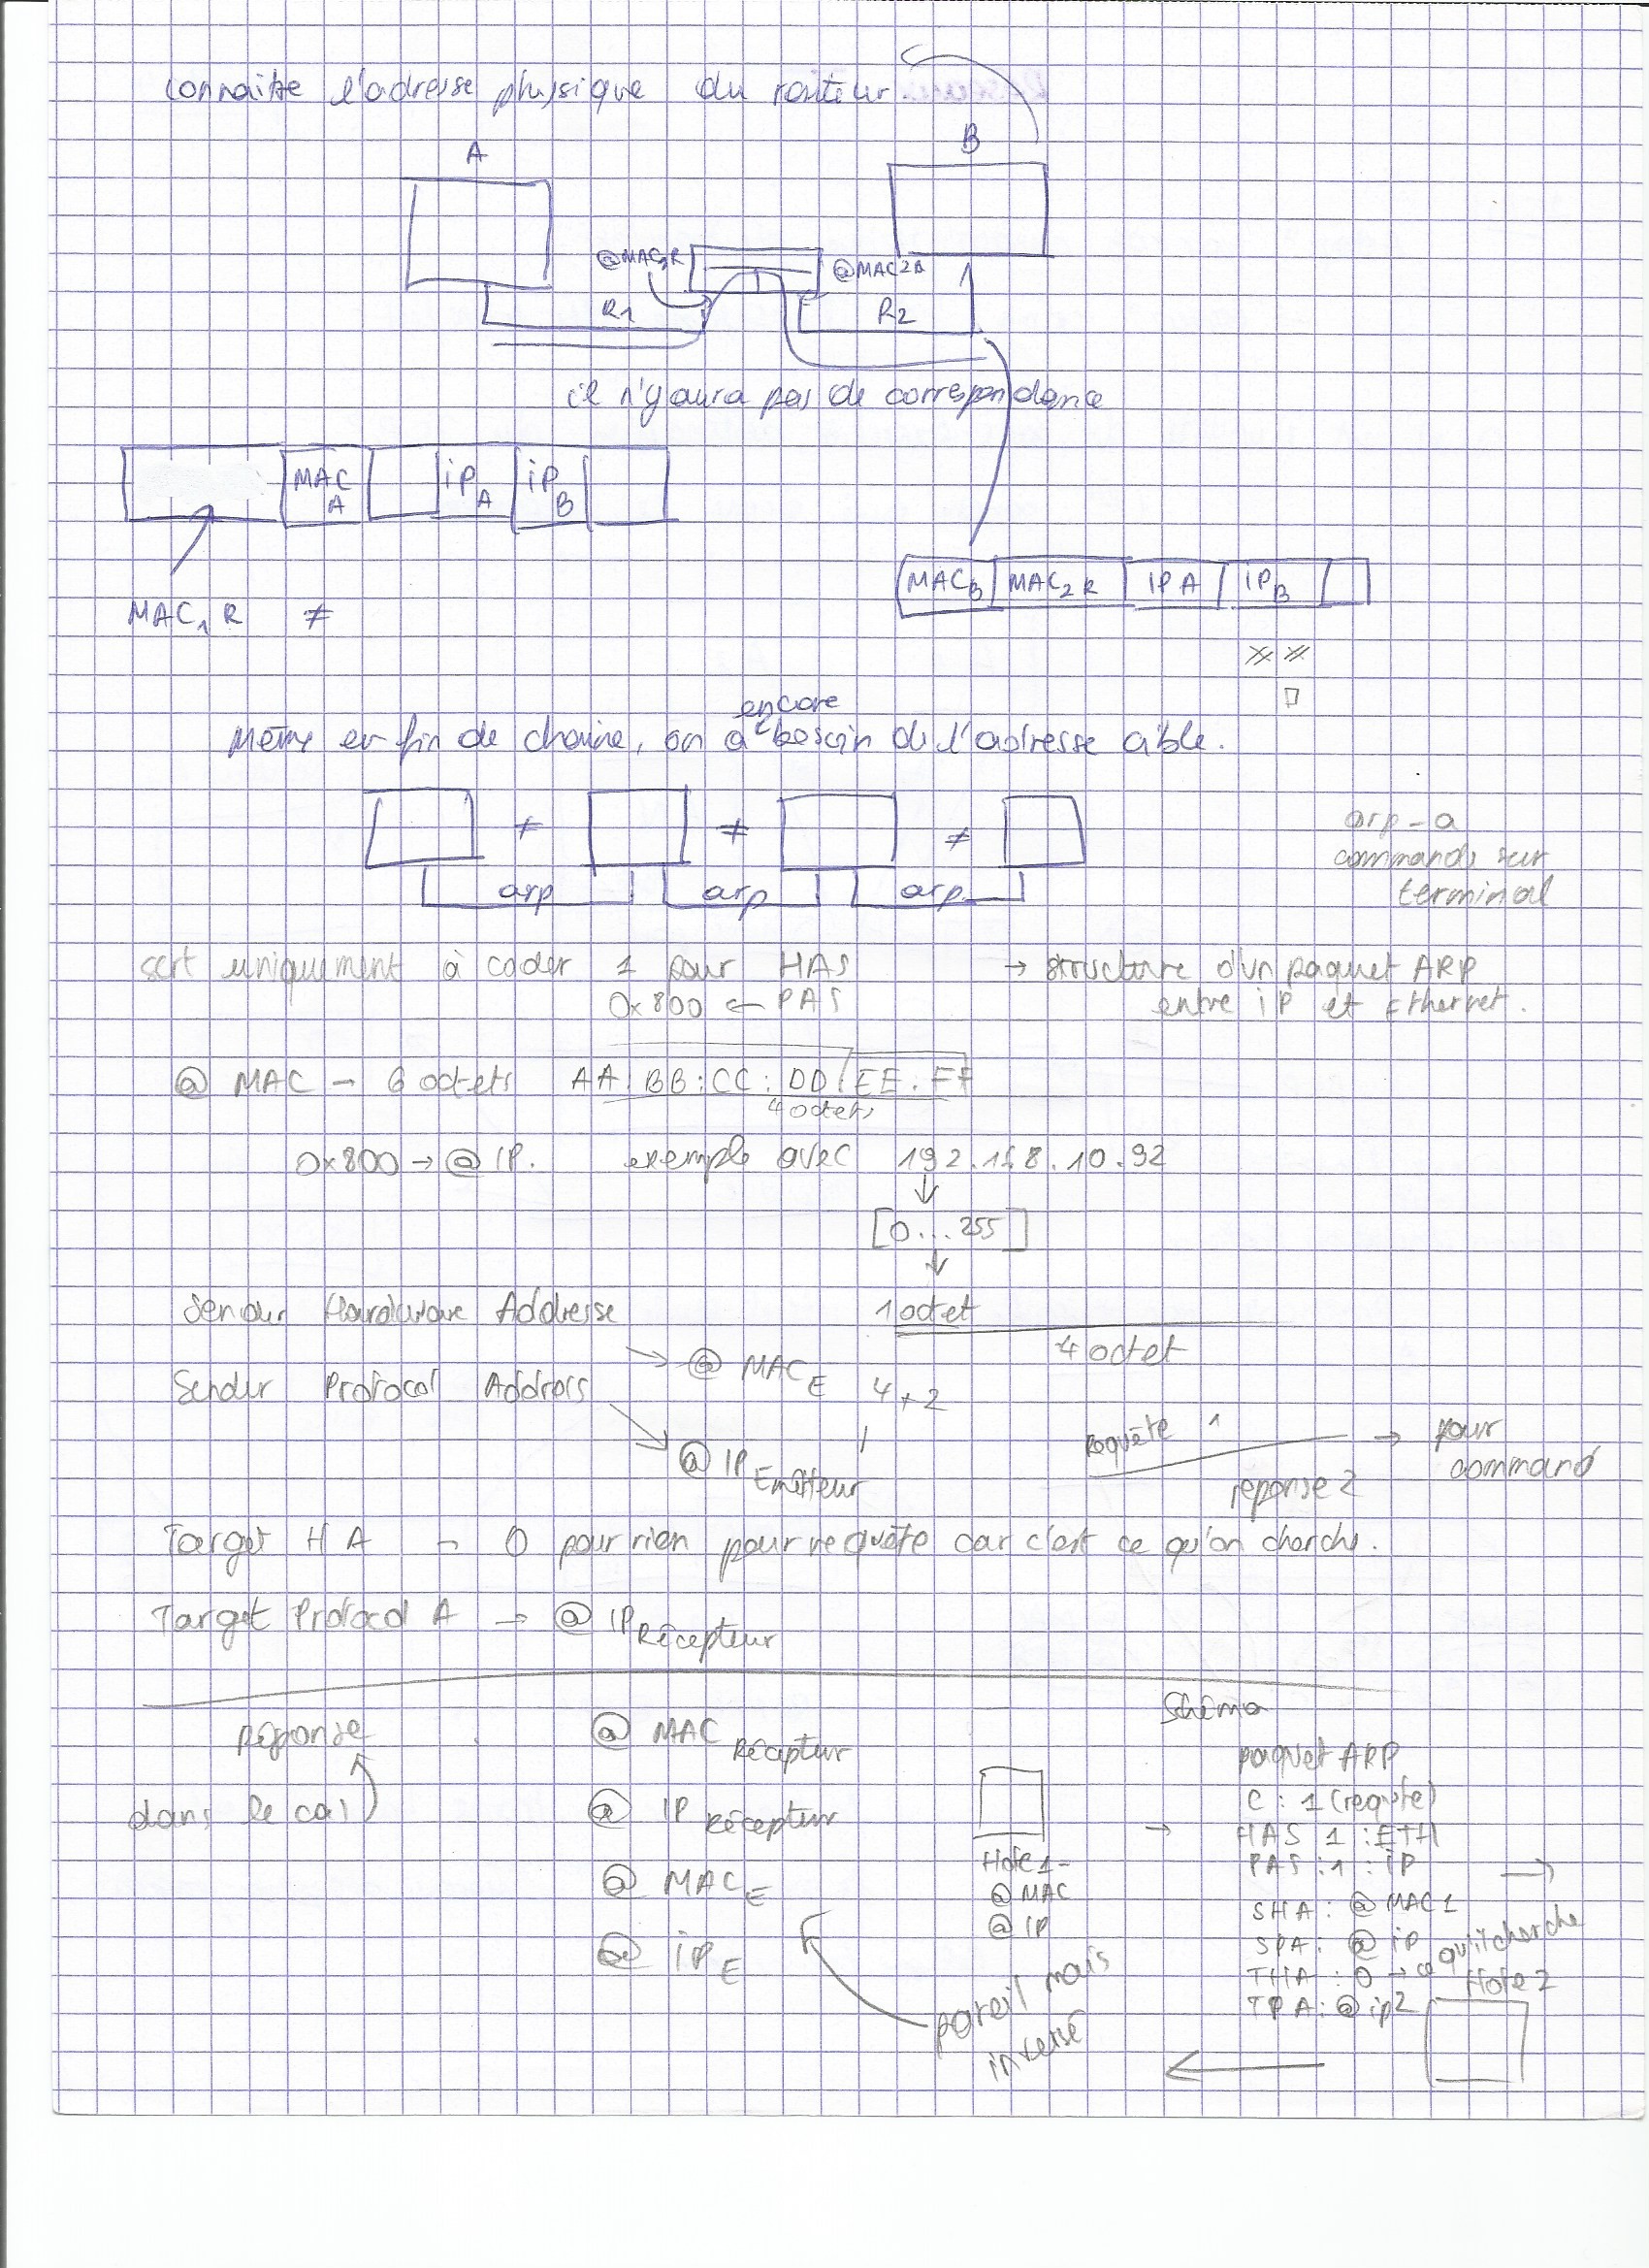 connaitre l'adresse physique du routeur
A
B
@MAC1R
@MAC2R
R1
R2
il n'y aura pas de correspondance
MAC A
iP A
iP B
MAC B
MAC2 R
IP A
iP B
MAC1 R ≠
encore
Même en fin de chaine, on a besoin de l'adresse cible.
≠ ≠ ≠
arp arp arp
arp -a
commande sur
terminal
sert uniquement à coder 1 pour HAS
0x800 ← PAS
→ structure d'un paquet ARP
entre iP et Ethernet.
@ MAC → 6 octets AA:BB:CC:DD:EE:FF
4 octets
0x800 → @ IP. exemple avec 192.168.10.92
[0...255]
1 octet
4 octet
Sender Hardware Addresse
→ @ MAC E 4+2
Sender Protocol Address
@ IP Emetteur
Requête 1
réponse 2
→ pour
command
Target H A → 0 pour rien pour requête car c'est ce qu'on cherche.
Target Protocol A → @ IP Récepteur
Réponse
dans le cas
@ MAC Récepteur
@ IP Récepteur
@ MAC E
@ iP E
pareil mais
inversé
Schéma
Hote 1
@ MAC
@ IP
→
paquet ARP
C : 1 (requête)
HAS 1 : ETH
PAS : 1 : iP
SHA : @ MAC 1
SPA : @ iP
THA : 0 → ce qu'il cherche
TPA : @ ip2
Hote 2